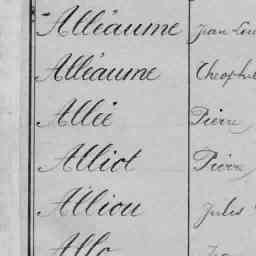 Alléaume Jean Lou
Alléaume Théophil
Allée Pierre
Alliot Pierre
Alliou Jules
Allo